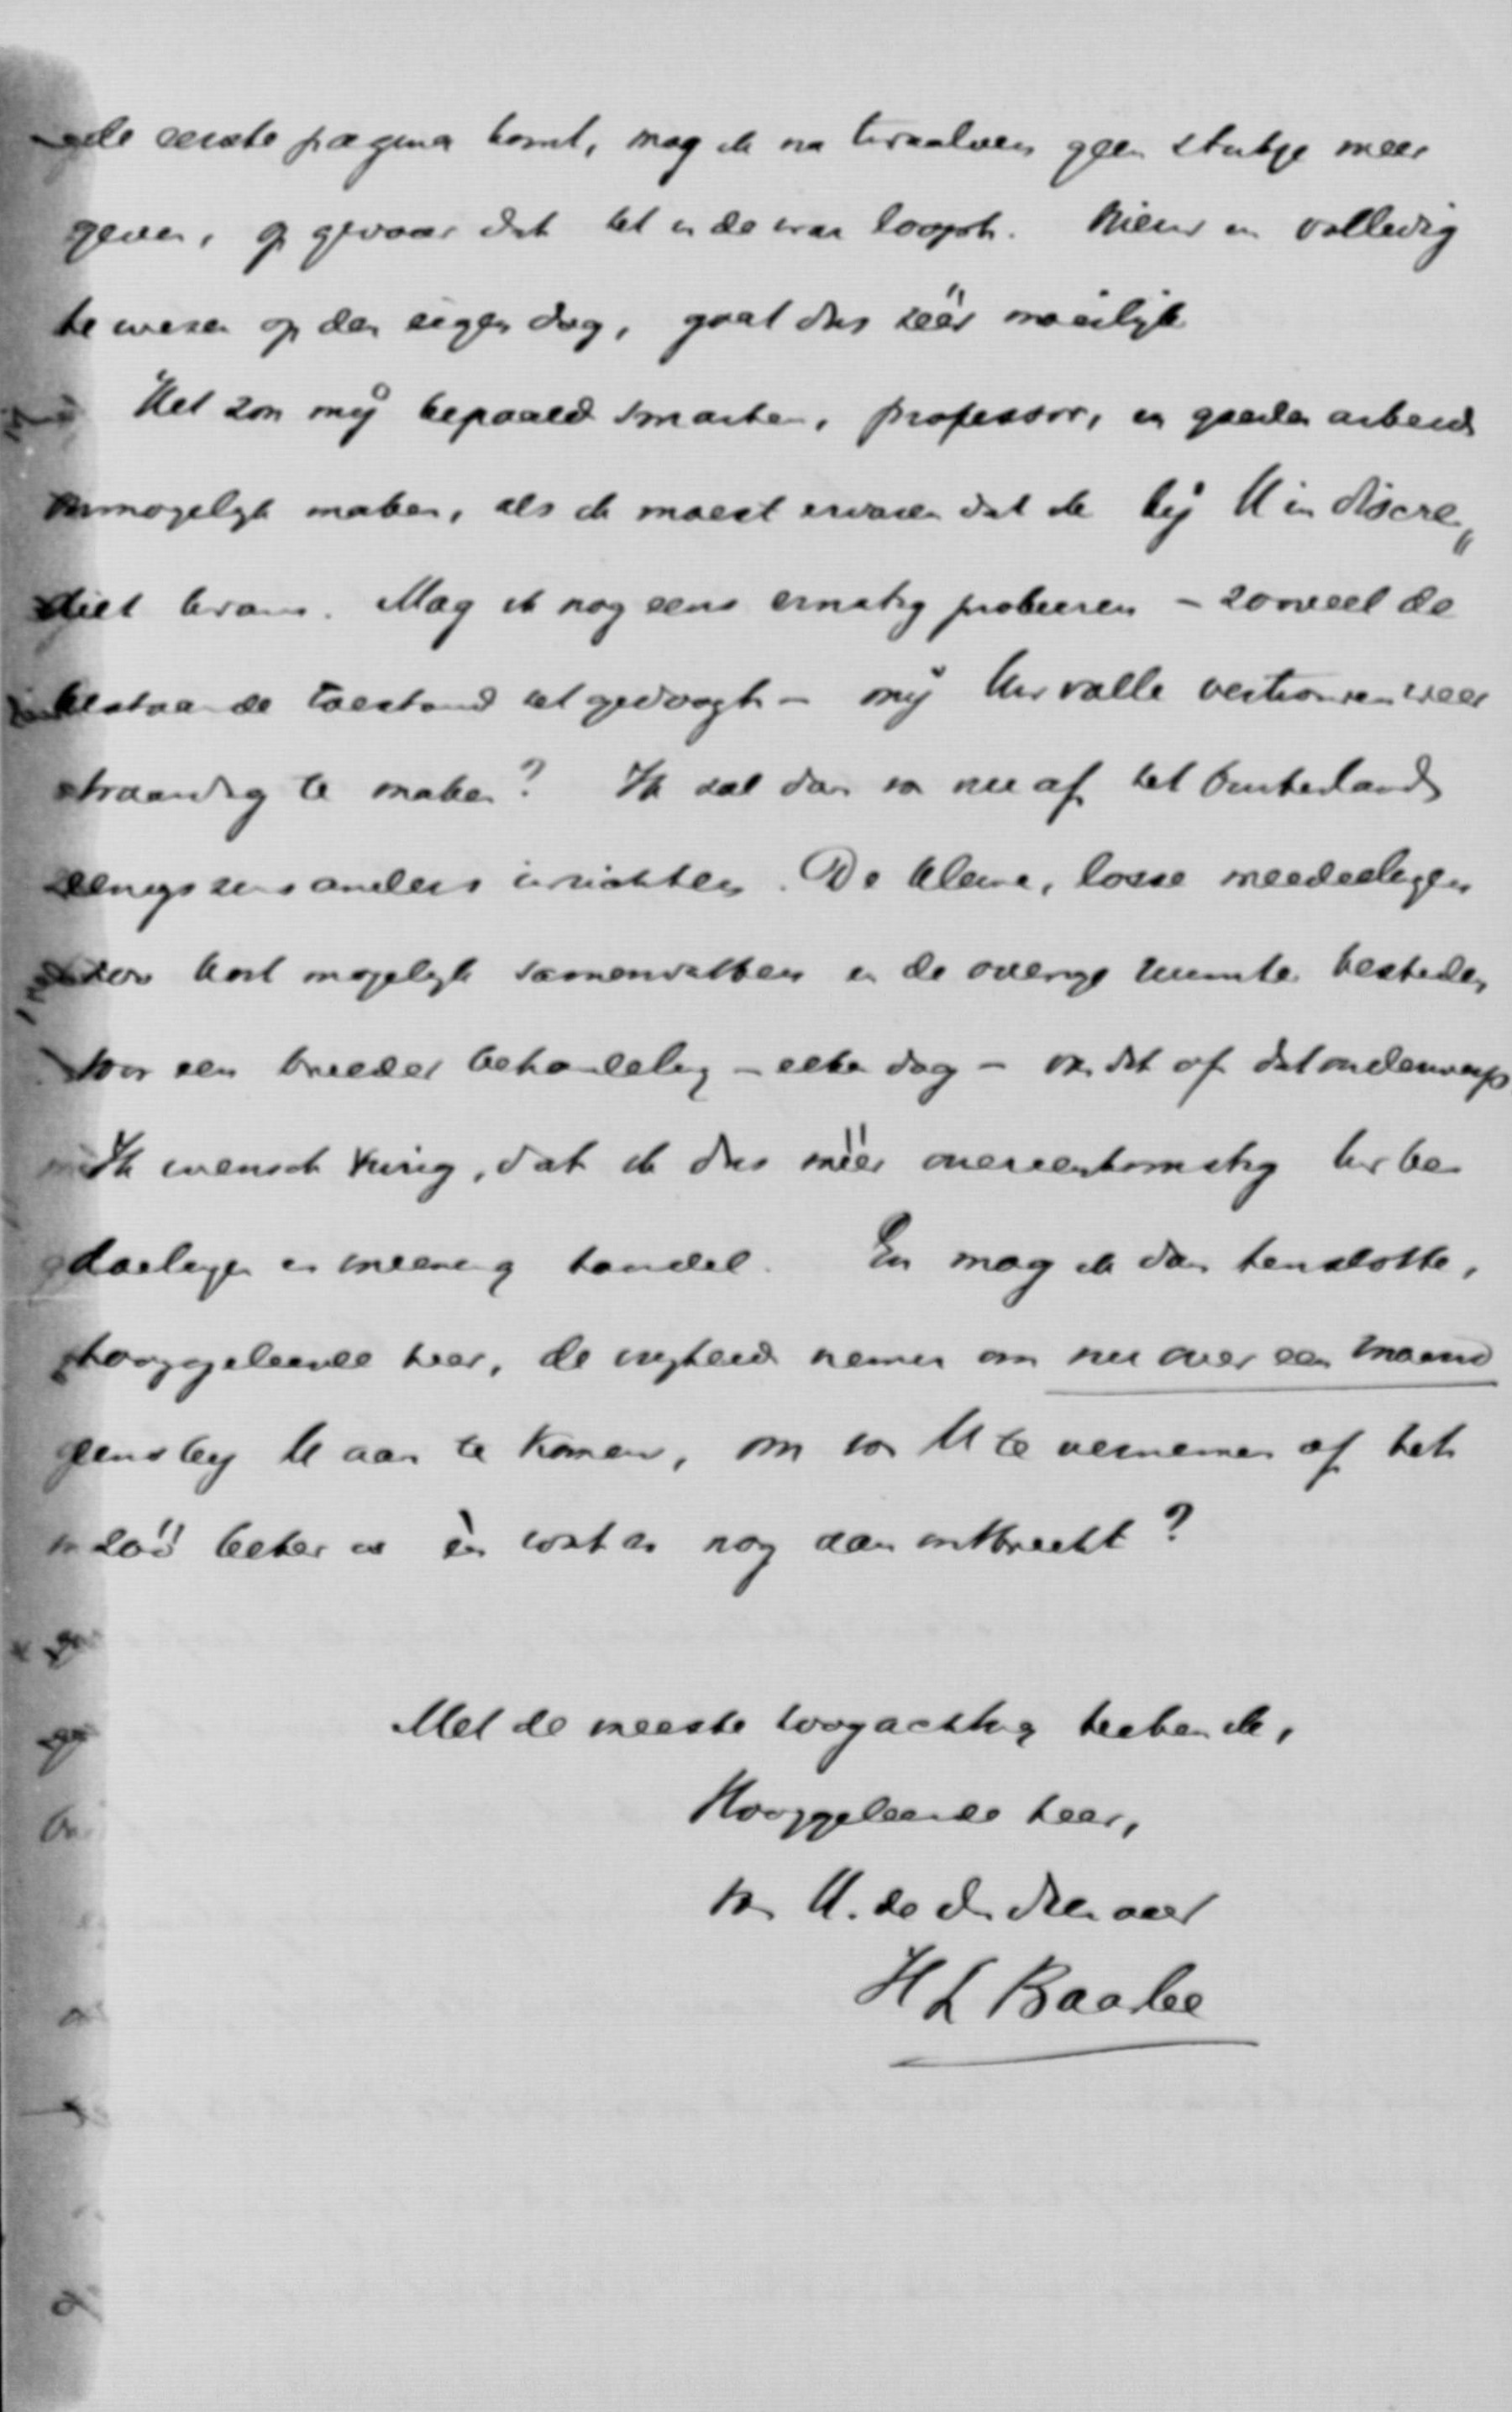 de eerste pagina komt, mag ik na twaalven geen stukje meer
geven, op gevaar dat het in de war loopt. Nieuw en volledig
te wezen op den eigen dag, gaat dus zéér moeilijk
Het zou mij bepaald smarten, professor, en goeden arbeid
onmogelijk maken, als ik moest ervaren dat ik bij U in discre„
diet kwam. Mag ik nog eens ernstig probeeren – zooveel de
bestaande toestand het gedoogt – mij Uw volle vertrouwen weer
waardig te maken? Ik zal dan van nu af het buitenland
eenigszins anders inrichten. De kleine, losse meedeelingen
zoo kort mogelijk samenvatten en de overige ruimte besteden
voor een breeder behandeling – elken dag – van dit of dat onderwerp
Ik wensch vurig, dat ik dus méér overeenkomstig Uw be
doelingen en meening handel. En mag ik dan tenslotte,
hooggeleerde heer, de vrijheid nemen om nu over een maand
eens bij U aan te komen, om van U te vernemen of het
zóó beter is èn wat er nog aan ontbreekt?
Met de meeste hoogachting teeken ik,
Hooggeleerde heer,
van U. de dw dienaar
H L Baarbé